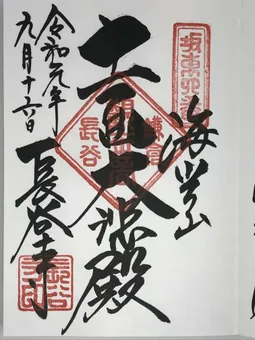 坂東四番
海光山
十一面大悲殿
鎌倉
長谷
長谷寺
令和元年
九月十六日
長谷寺印